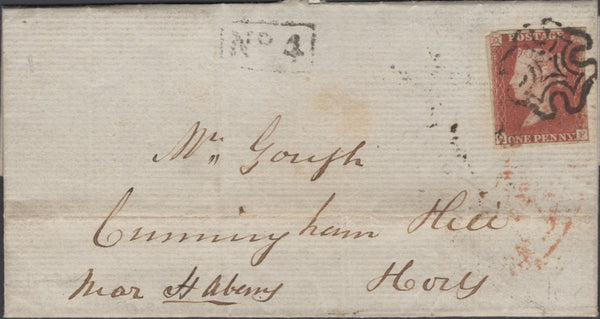 No 4
POSTAGE
ONE PENNY
Mr Gough
Cunningham Hill
Near St Albans Herts